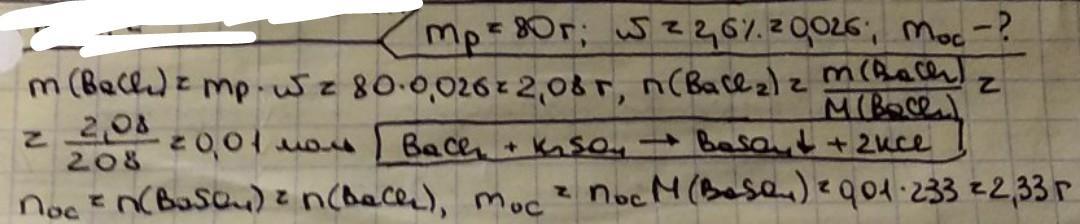 mр = 80 г; ω = 2,6% = 0,026; mос - ?
m(BaCl₂) = mр · ω = 80 · 0,026 = 2,08 г, n(BaCl₂) = m(BaCl₂)/M(BaCl₂) =
= 2,08/208 = 0,01 моль BaCl₂ + K₂SO₄ → BaSO₄↓ + 2KCl
nос = n(BaSO₄) = n(BaCl₂), mос = nос M(BaSO₄) = 0,01 · 233 = 2,33 г